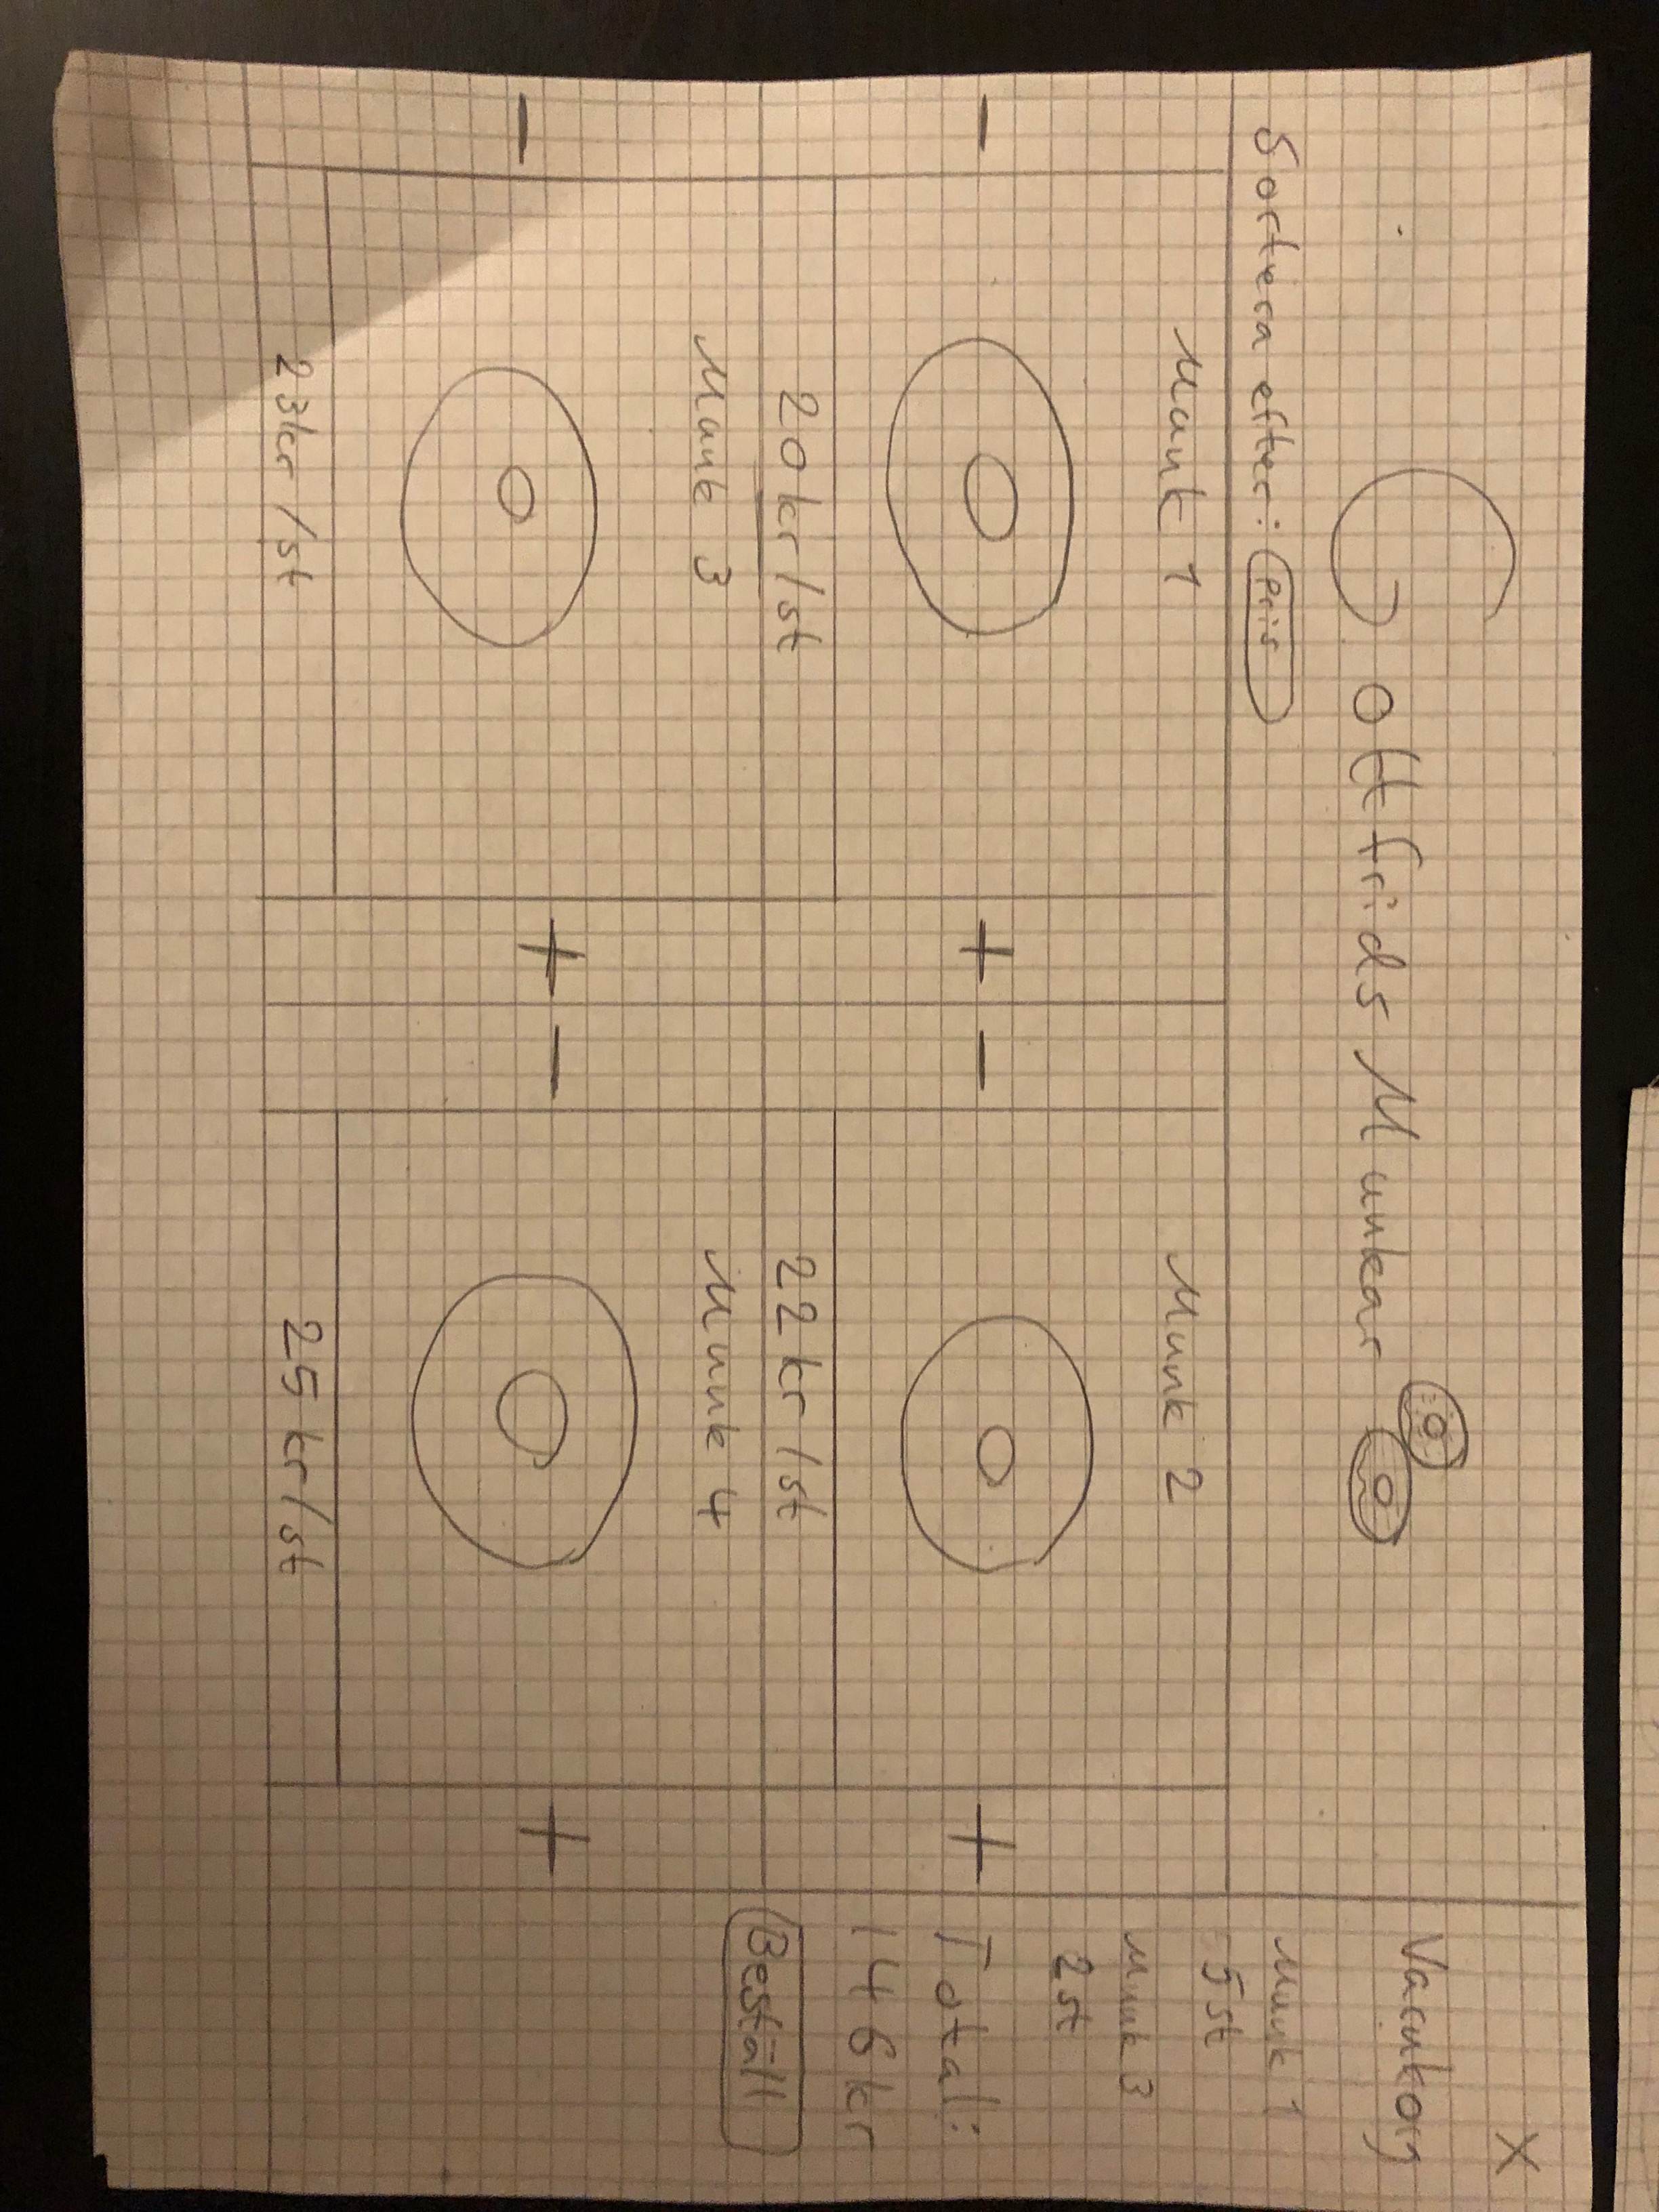 Gottfrids Munkar
Sortera efter: Pris
Munk 1
- +
20 kr/st
Munk 2
- +
22 kr/st
Munk 3
- +
23kr/st
Munk 4
- +
25 kr/st
X
Varukorg
Munk 1
5 st
Munk 3
2 st
Total:
146 kr
Beställ